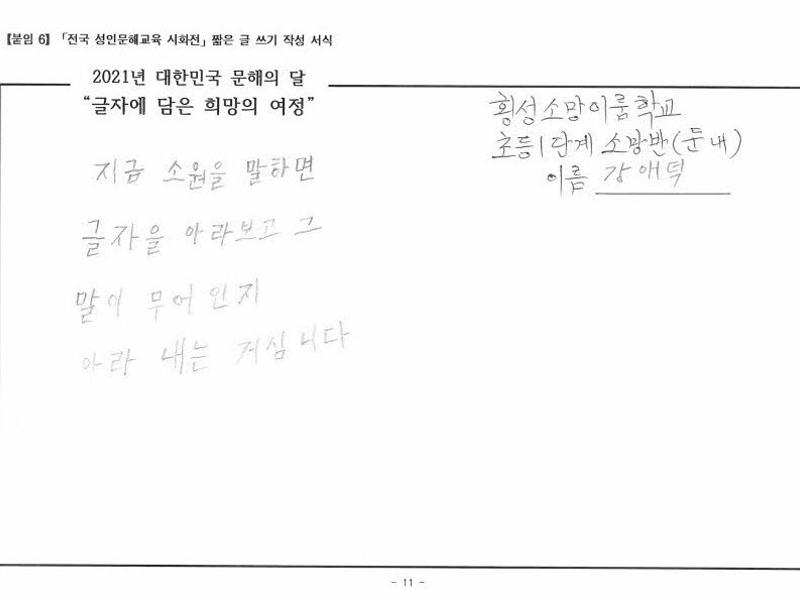 【붙임 6】 「전국 성인문해교육 시화전」 짧은 글 쓰기 작성 서식
2021년 대한민국 문해의 달
“글자에 담은 희망의 여정”
횡성소망이룸학교
초등1단계 소망반(둔내)
이름 강애덕
지금 소원을 말하면
글자을 아라보고 그
말이 무어인지
아라 내는 거심니다
- 11 -